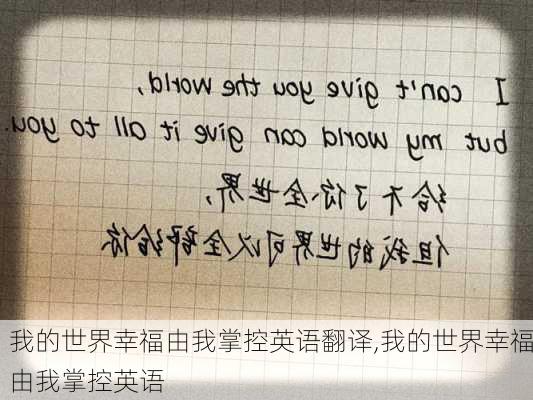 I can't give you the world,
but my world can give it all to you.
给不了你全世界,
但我的世界可以全部给你
我的世界幸福由我掌控英语翻译,我的世界幸福
由我掌控英语